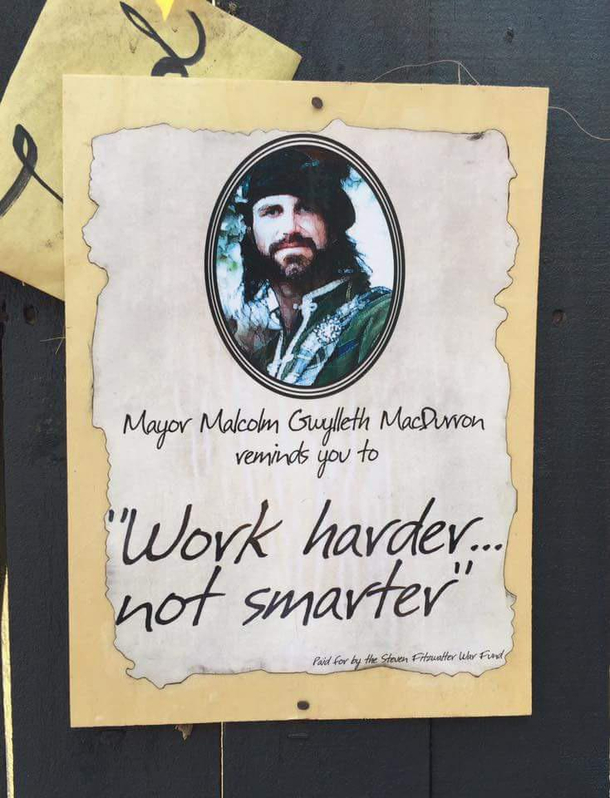 Mayor Malcolm Gwylleth MacDurron
reminds you to
"Work harder...
not smarter"
Paid for by the Steven Fitzwalter War Fund